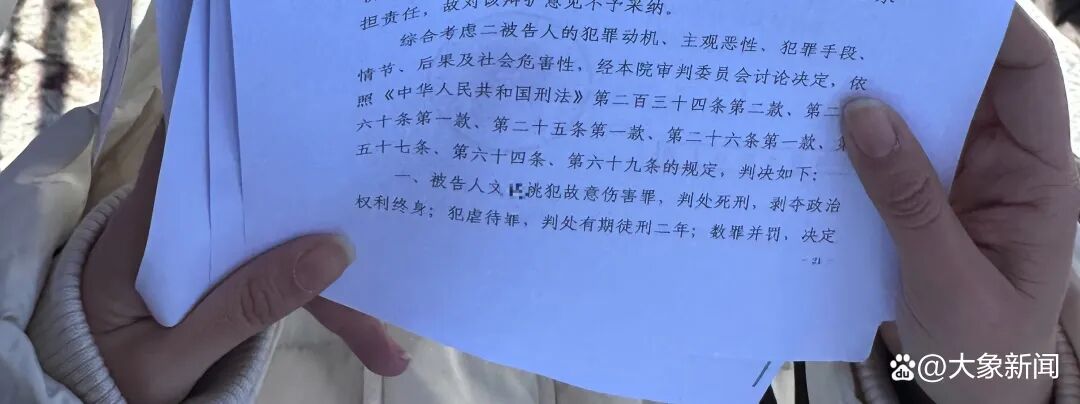 担责任，故对该辩护意见不予采纳。
综合考虑二被告人的犯罪动机、主观恶性、犯罪手段、
情节、后果及社会危害性，经本院审判委员会讨论决定，依
照《中华人民共和国刑法》第二百三十四条第二款、第二
六十条第一款、第二十五条第一款、第二十六条第一款、第
五十七条、第六十四条、第六十九条的规定，判决如下：
一、被告人文 桃犯故意伤害罪，判处死刑，剥夺政治
权利终身；犯虐待罪，判处有期徒刑二年；数罪并罚，决定
- 21 -
du @大象新闻